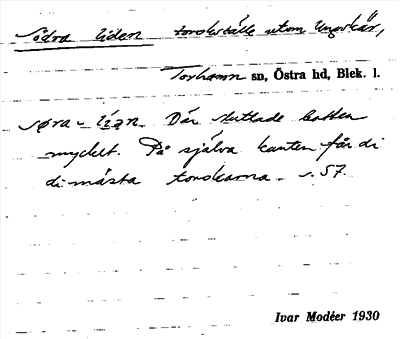 Södra liden torskställe utom Ungskär,
Torhamn sn, Östra hd, Blek. l.
søra-līən. Där sluttade botten
mycket. På själva kanten får di
di mästa torskarna. s. 57.
Ivar Modéer 1930